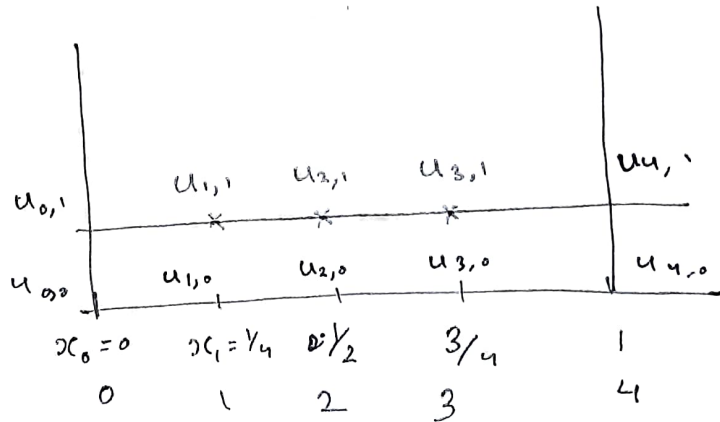 u₁,₁ u₂,₁ u₃,₁ u₄,₁
u₀,₁
u₀,₀ u₁,₀ u₂,₀ u₃,₀ u₄,₀
x₀ = 0 x₁ = 1/4 1/2 3/4 1
0 1 2 3 4